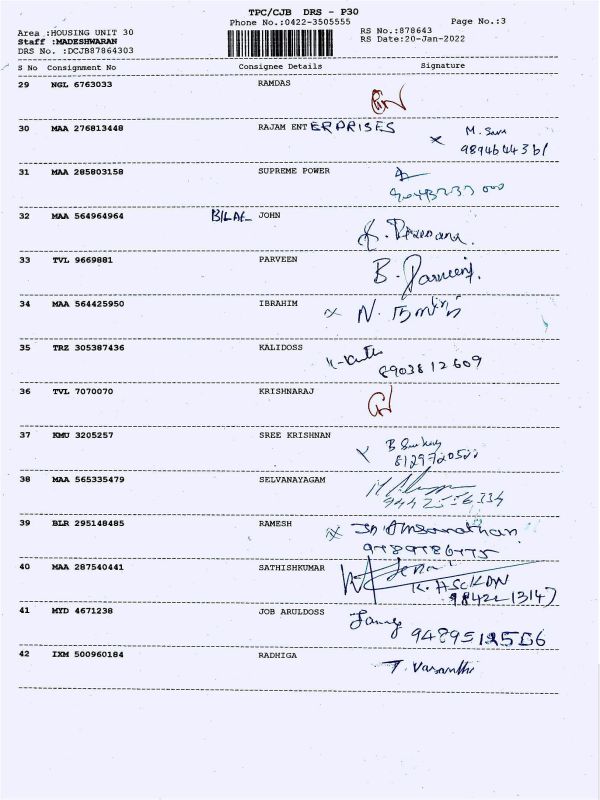 TPC/CJB DRS - P30
Phone No.:0422-3505555
Page No.:3
Area :HOUSING UNIT 30
Staff :MADESHWARAN
DRS No. :DCJB87864303
RS No.:878643
RS Date:20-Jan-2022
S No Consignment No Consignee Details Signature
29 NGL 6763033 RAMDAS
30 MAA 276813448 RAJAM ENTERPRISES
31 MAA 285803158 SUPREME POWER
32 MAA 564964964 BILAL JOHN
33 TVL 9669881 PARVEEN B. Parveen.
34 MAA 564425950 IBRAHIM
35 TRZ 305387436 KALIDOSS
8903812609
36 TVL 7070070 KRISHNARAJ
37 KMU 3205257 SREE KRISHNAN
38 MAA 565335479 SELVANAYAGAM
39 BLR 295148485 RAMESH
40 MAA 287540441 SATHISHKUMAR
41 MYD 4671238 JOB ARULDOSS
42 IXM 500960184 RADHIGA T. Vasanthi